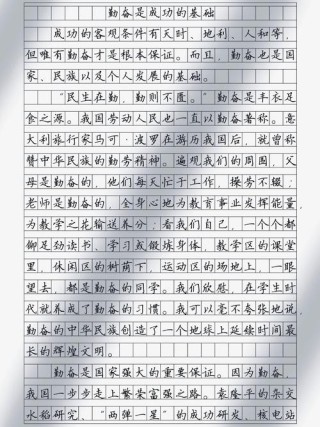 勤奋是成功的基础
成功的客观条件有天时、地利、人和等，
但唯有勤奋才是根本保证。而且，勤奋也是国
家、民族以及个人发展的基础。
“民生在勤，勤则不匮。”勤奋是丰衣足
食之源。我国劳动人民也一直以勤奋著称。意
大利旅行家马可·波罗在游历我国后，就曾称
赞中华民族的勤劳精神。遍观我们的周围，父
母是勤奋的，他们每天忙于工作，操劳不辍；
老师是勤奋的，全身心地为教育事业发挥能量，
为教学之花输送养分；看我们自己，一个个都
铆足劲读书、学习或锻炼身体，教学区的课堂
里，休闲区的树荫下，运动区的场地上，一眼
望去，都是勤奋的同学。我们欣慰，在学生时
代就养成了勤奋的习惯。我可以毫不夸张地说，
勤奋的中华民族创造了一个地球上延续时间最
长的辉煌文明。
勤奋是国家强大的重要保证。因为勤奋，
我国一步步走上繁荣富强之路。袁隆平的杂交
水稻研究，“两弹一星”的成功研发，核电站